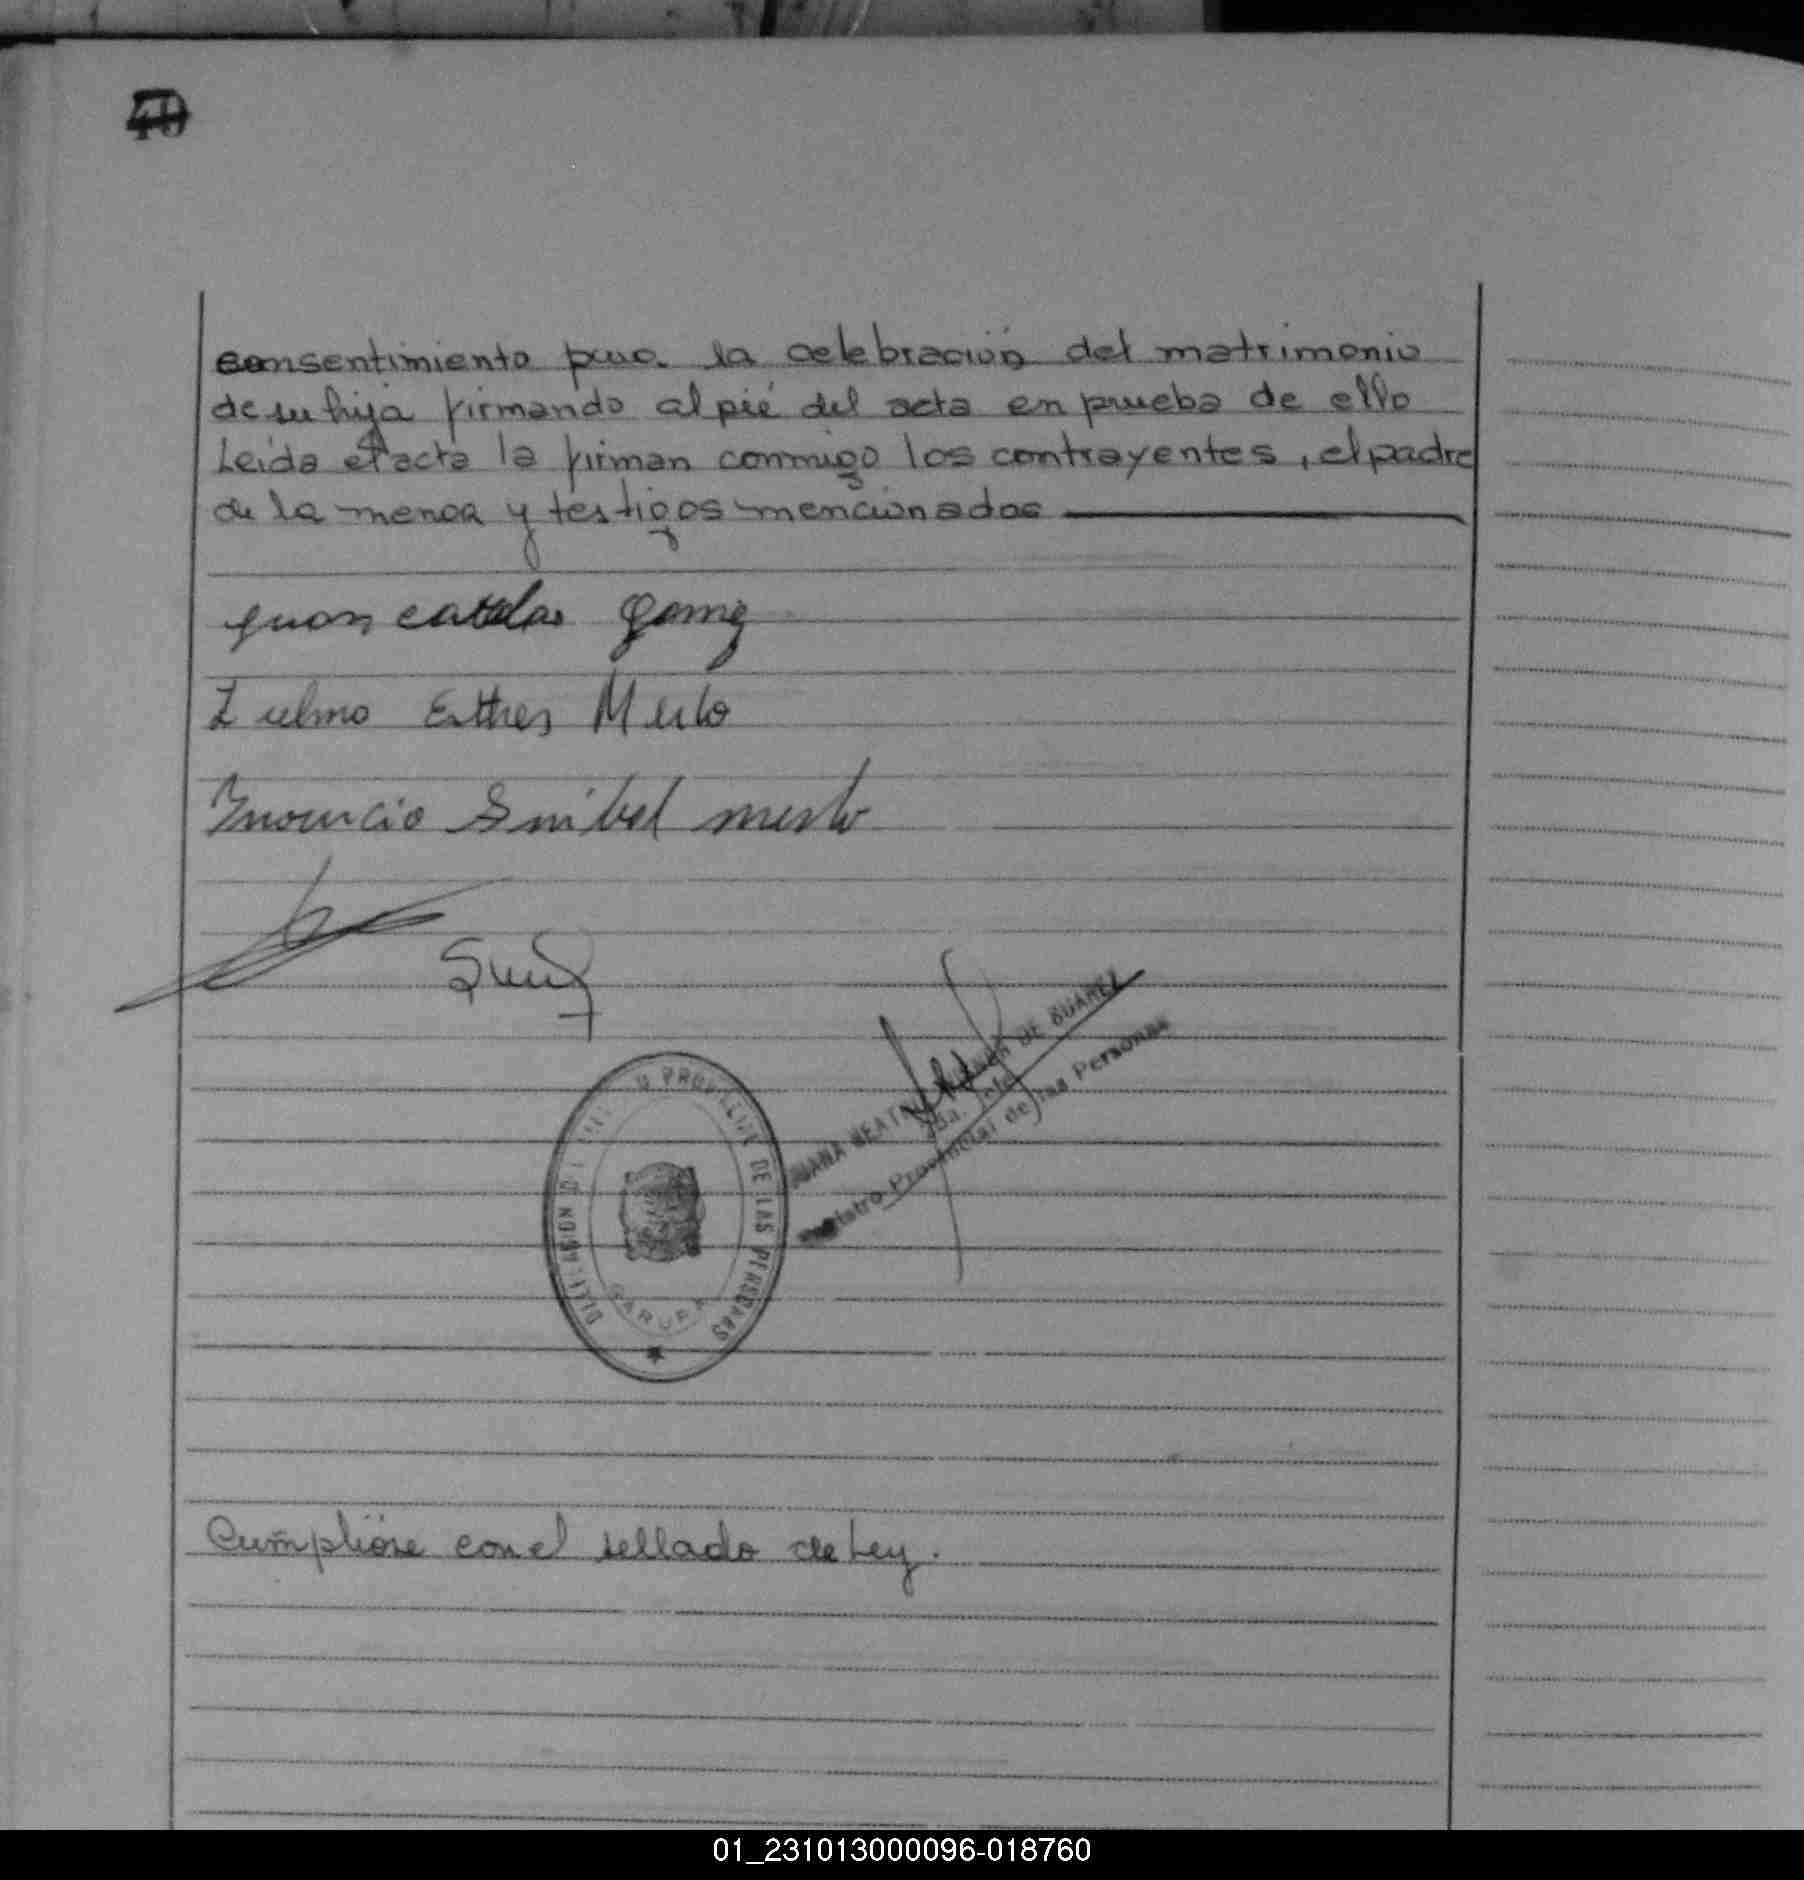 consentimiento para la celebración del matrimonio
de su hija firmando al pié del acta en prueba de ello
Leida el acta la firman conmigo los contrayentes, el padre
de la menor y testigos mencionados
Juan Gomez
Zulma Esther Merlo
Inocencio Anibal merlo
PROVINCIAL DE LAS PERSONAS
GARUPA
JUANA BEATRIZ DE SUAREZ
Registro Provincial de las Personas
Cumplióse con el sellado de Ley.
01_231013000096-018760